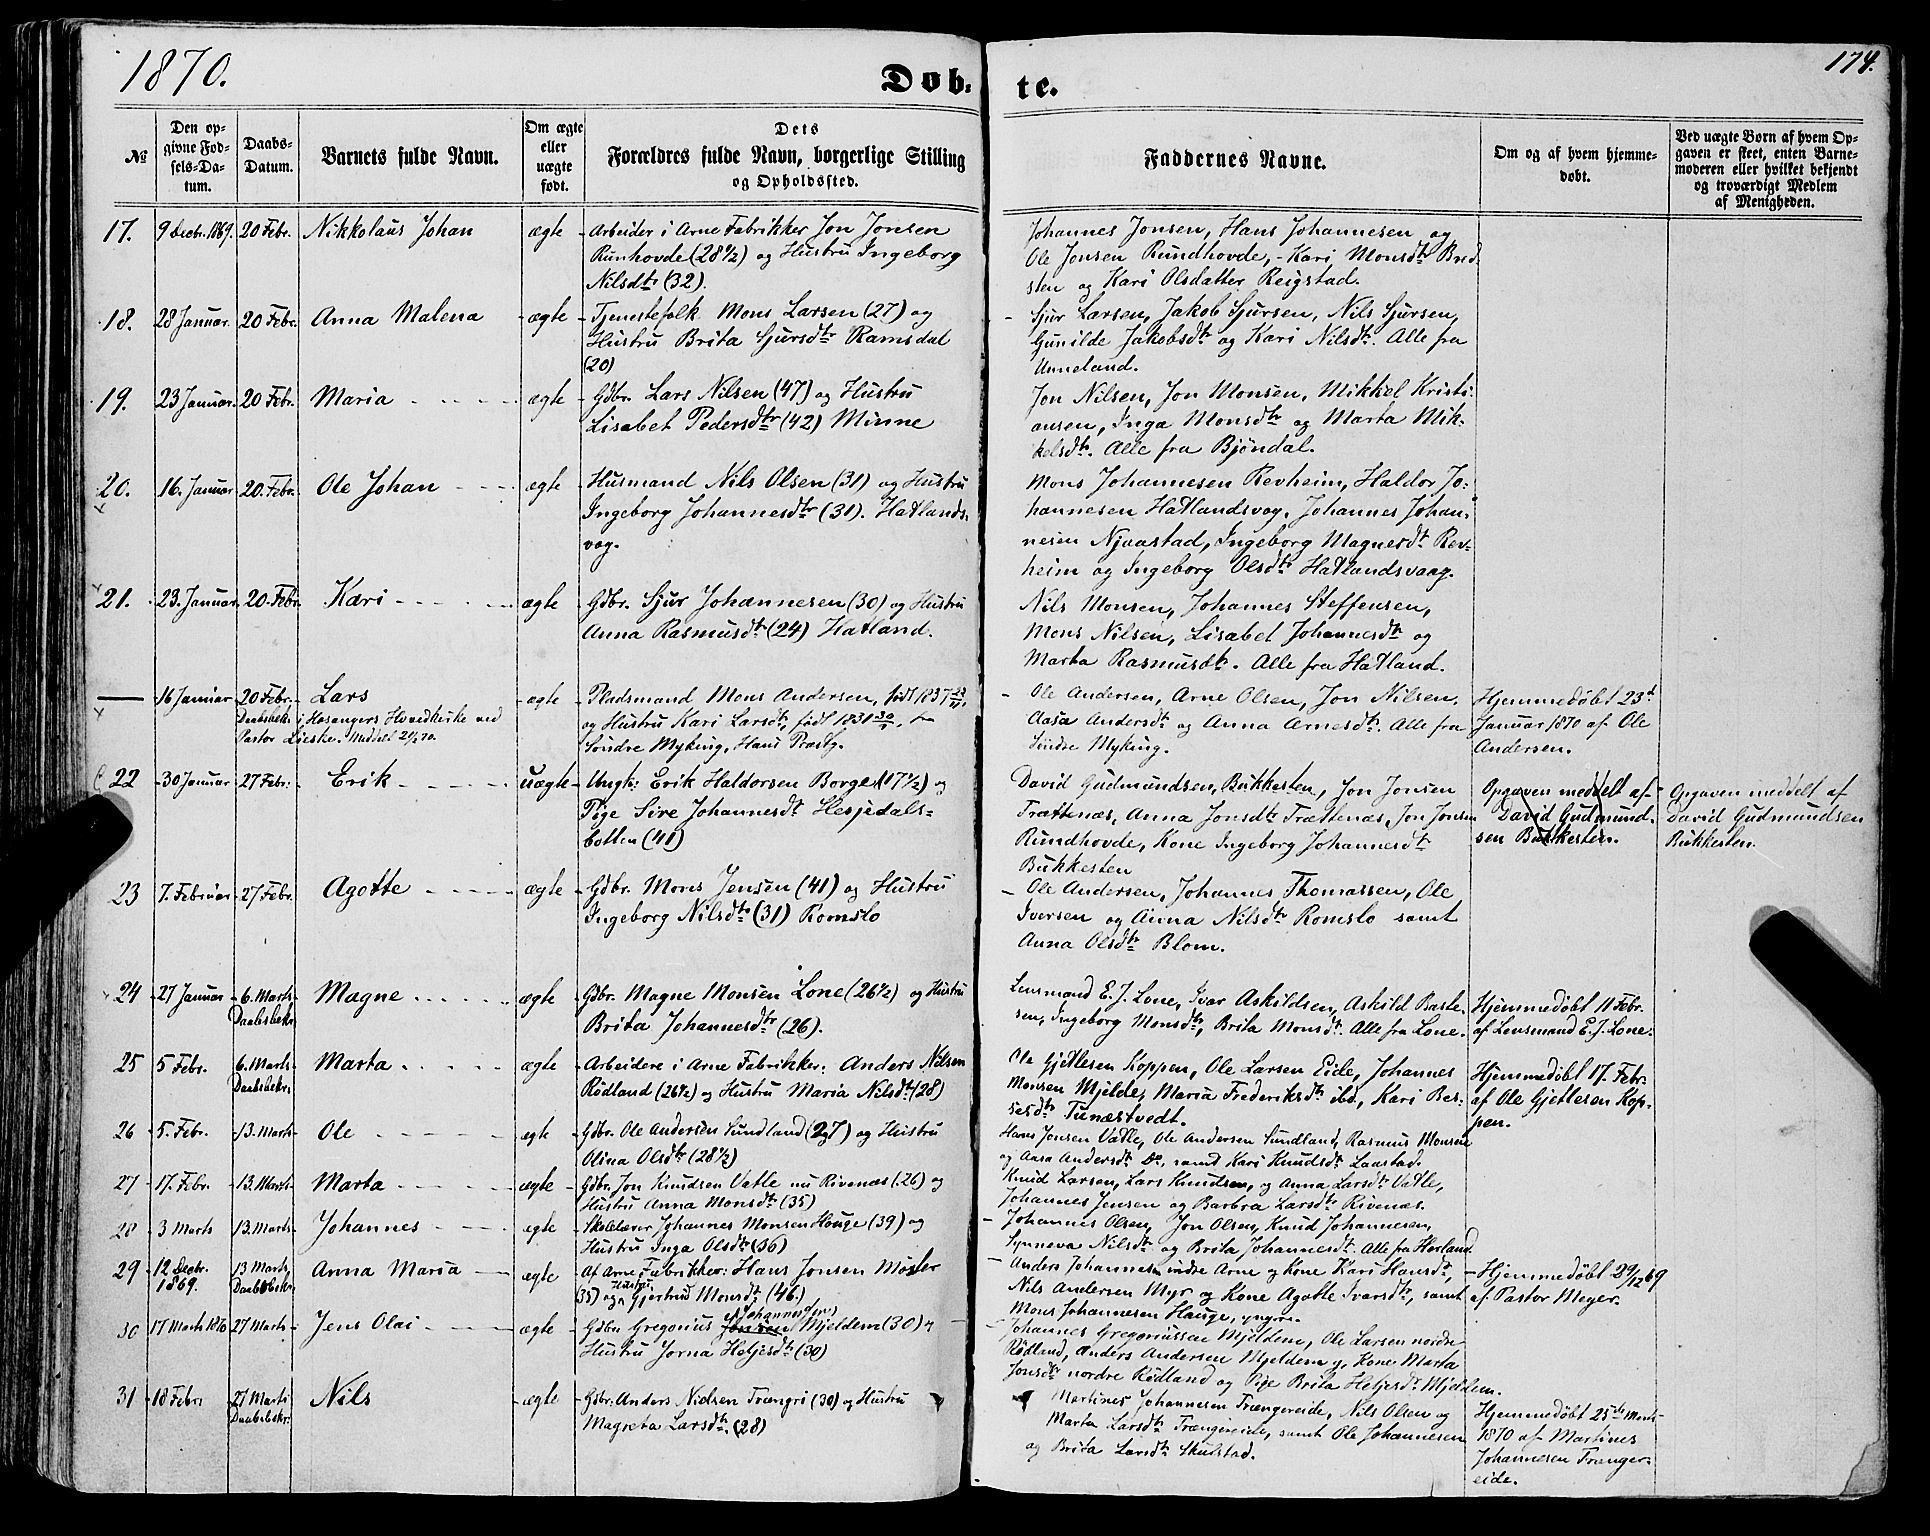 1870.
Døb-
te.
174.
№
Den op-
givne Fød-
sels-Da-
tum.
Daabs-
Datum.
Barnets fulde Navn.
Om ægte
eller
uægte
født.
Dets
Forældres fulde Navn, borgerlige Stilling
og Opholdssted.
Faddernes Navne.
Om og af hvem hjemme-
døbt.
Ved uægte Børn af hvem Op-
gaven er skeet, enten Barne-
moderen eller hvilket bekjendt
og troværdigt Medlem
af Menigheden.
17. 9 Decbr. 1869. 20 Febr. Nikkolaus Johan ægte Arbeider i Arne Fabrikker Jon Jonsen
Runhovde (28½) og Hustru Ingeborg
Nilsdtr (32).
Johannes Jonsen, Hans Johannesen og
Ole Jonsen Rundhovde, - Kari Monsdtr Bred
sten og Kari Olsdatter Reigstad.
18. 28 Januar 20 Febr. Anna Malena ægte Tjenestefolk Mons Larsen (27) og
Hustru Brita Sjursdtr Ramsdal
(20)
Sjur Larsen, Jakob Sjursen, Nils Sjursen,
Gunilde Jakobsdtr og Kari Nilsdtr. Alle fra
Unneland.
19. 23 Januar. 20 Febr. Maria ægte Gdbr. Lars Nilsen (47) og Hustru
Lisabet Pedersdtr (42) Minne
Jon Nilsen, Jon Monsen, Mikkel Kristi-
ansen, Inga Monsdtr og Marta Mik-
kelsdtr. Alle fra Bjöndal.
20. 16. Januar 20. Febr. Ole Johan ægte Husmand Nils Olsen (31) og Hustru
Ingeborg Johannesdtr (31). Hatlands-
vag.
Mons Johannesen Revheim, Haldor Jo-
hannesen Hatlandsvag, Johannes Johan-
nesen Njaastad, Ingeborg Magnesdtr Rev-
heim og Ingeborg Olsdtr Hatlandsvaag.
21. 23. Januar 20. Febr. Kari ægte Gdbr. Sjur Johannesen (30) og Hustru
Anna Rasmusdtr (24) Hatland.
Nils Monsen, Johannes Steffensen,
Mons Nilsen, Lisabet Johannesdtr og
Marta Rasmusdtr. Alle fra Hatland.
16 Januar 20 Febr. Lars ægte Pladsmand Mons Andersen, født 1837
Daabsbek. i Hosangers Hovedkirke ved og Hustru Kari Larsdtr, født 1831
Pastor Lieske. Meddelt Söndre Myking, Hans Præstg.
Ole Andersen, Arne Olsen, Jon Nilsen,
Aasa Andersdtr og Anna Arnesdtr. Alle fra
Söndre Myking.
Hjemmedøbt 23d
Januar 1870 af Ole
Andersen.
22 30 Januar 27 Febr. Erik uægte Ungk: Erik Haldorsen Borge (17½) og
Pige Sire Johannesdtr Hesjedals-
botten (41)
David Gudmundsen, Bukkesten, Jon Jonsen
Trættenæs, Anna Jonsdtr Trættenæs, Jon Jonsen
Rundhovde, Kone Ingeborg Johannesdtr
Bukkesten
Opgaven meddelt af
David Gudmund-
sen Bukkesten.
Opgaven meddelt af
David Gudmundsen
Bukkesten.
23 7. Februar 27 Febr. Agotte ægte Gdbr. Mons Jensen (41) og Hustru
Ingeborg Nilsdtr (31) Romslo
Ole Andersen, Johannes Thomassen, Ole
Iversen og Anna Nilsdtr Romslo samt
Anna Olsdtr Blom.
24 27 Januar 6. Marts Magne ægte Gdbr. Magne Monsen Lone (26½) og Hustru
Daabsbekr. Brita Johannesdtr (26).
Lensmand E. J. Lone, Ivar Askildsen, Askild Baste-
sen, Ingeborg Monsdtr, Brita Monsdtr. Alle fra Lone.
Hjemmedøbt 11 Febr.
af Lensmand E. J. Lone.
25 5 Febr. 6. Marts Marta ægte Arbeidere i Arne Fabrikker: Anders Nilsen
Daabsbekr. Rödland (26½) og Hustru Maria Nilsdtr (28)
Ole Gjetlesen Koppen, Ole Larsen Eide, Johannes
Monsen Mjelde, Maria Frederiksdtr ibd, Kari Bes-
sesdtr Tunæstvedt.
Hjemmedøbt 17. Febr.
af Ole Gjetlesen Kop-
pen.
26 5. Febr. 13. Marts Ole ægte Gdbr. Ole Andersen Sundland (27) og Hustru
Olina Olsdtr (28½)
Hans Jonsen Vatle, Ole Andersen Sundland, Rasmus Monsen
og Aasa Andersdtr Do, samt Kari Knudsdtr Laastad.
27 17. Febr. 13. Marts Marta ægte Gdbr. Jon Knudsen Vatle nu Rivenæs (26) og
Hustru Anna Monsdtr (35)
Knud Larsen, Lars Knudsen, og Anna Larsdtr Vatle,
Johannes Jensen og Barbra Larsdtr Rivenæs.
28 3 Marts 13. Marts Johannes ægte Skolelærer Johannes Monsen Houge (39) og
Hustru Inga Olsdtr (36)
Johannes Olsen, Jon Olsen, Knud Johannesen,
Synneva Nilsdtr og Brita Johannesdtr. Alle fra Herland
29 12 Decbr. 1869. 13 Marts Anna Maria ægte Af Arne Fabrikker: Hans Jonsen Moster
Daabsbekr. (35) og Hustru Gjertrud Monsdtr (46.)
Anders Johannesen indre Arne og Kone Kari Hansdtr,
Nils Andersen Myr og Kone Agotte Ivarsdtr, samt
Mons Johannesen Hauge, yngre.
Hjemmedøbt 29/12 69
af Pastor Meyer.
30 17 Marts 1870 27 Marts Jens Olai ægte Gdbr. Gregorius Jonsen (Johannesen) Mjeldem (30) og
Hustru Jorna Heljesdtr (30)
Johannes Gregoriussen Mjeldem, Ole Larsen nordre
Rödland, Anders Andersen Mjeldem og Kone Marta
Jonsdtr nordre Rödland og Pige Brita Heljesdtr Mjeldem.
31 18 Febr. 27 Marts Nils ægte Gdbr. Anders Nielsen Trængri (30) og Hustru
Daabsbekr. Magreta Larsdtr. (28)
Martines Johannesen Trængereide, Nils Olsen og
Marta Larsdtr Trængereide, samt Ole Johannesen
og Brita Larsdtr Skulstad.
Hjemmedøbt 25de Marts
1870 af Martines
Johannesen Trænger-
eide.